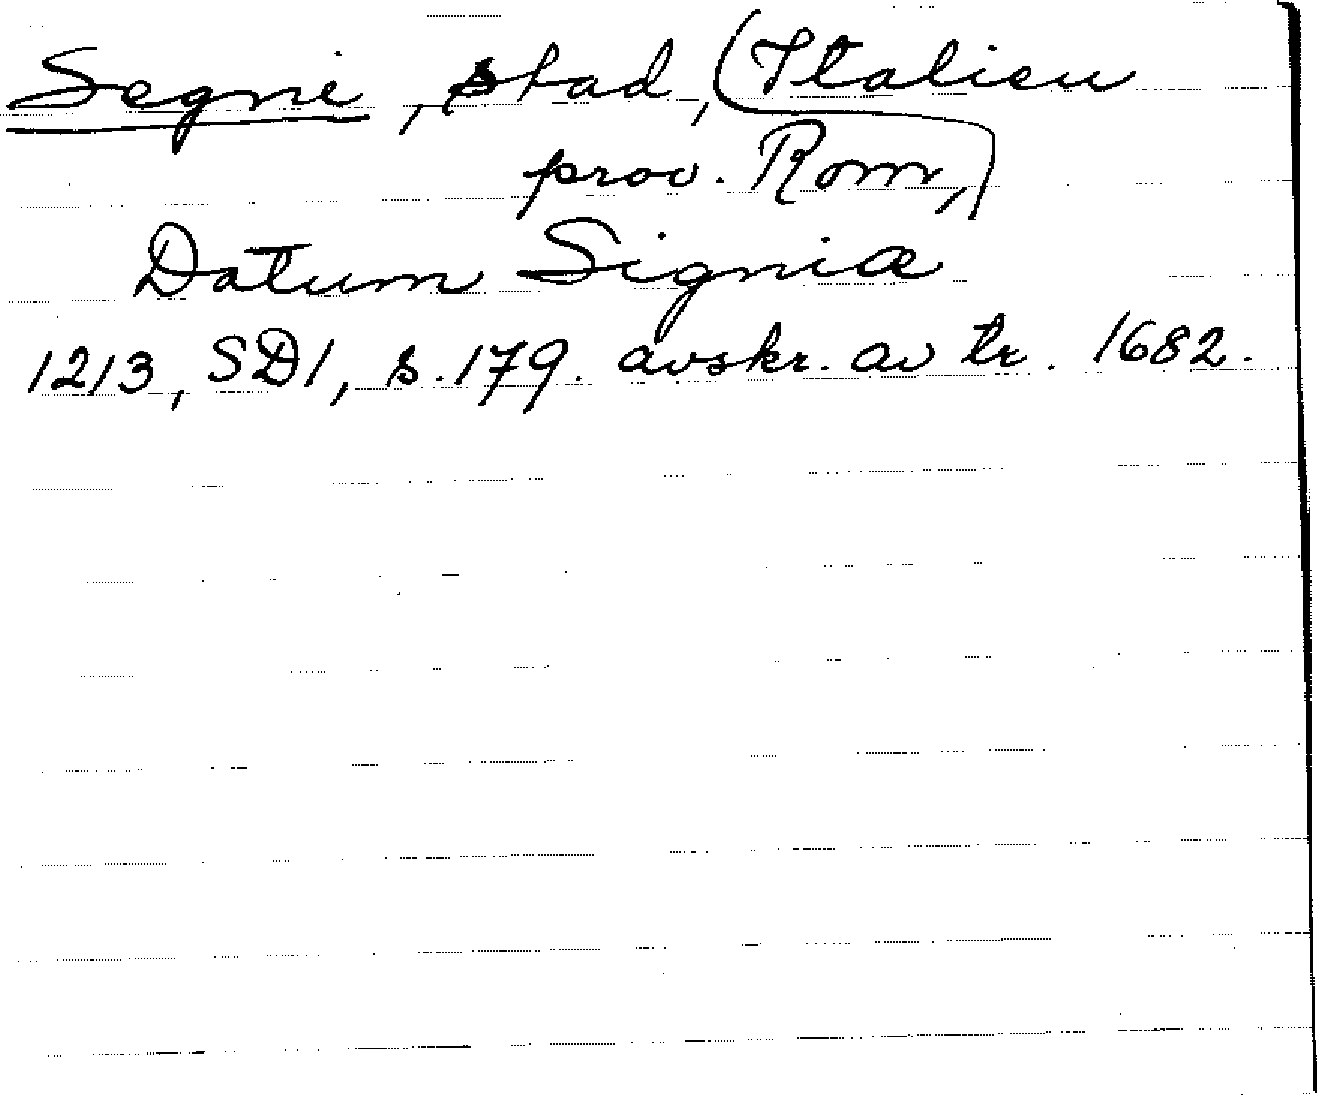 Segni, stad, (Italien
prov. Rom,)
Datum Signiæ
1213, SD1, s. 179. avskr. av tr. 1682.